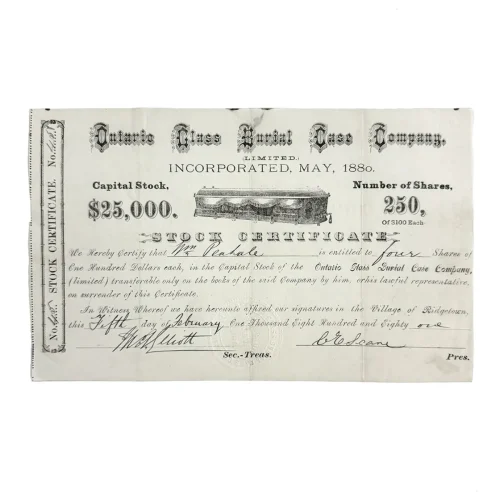 Ontario Glass Burial Case Company,
(LIMITED.)
INCORPORATED, MAY, 1880.
Capital Stock,
$25,000.
Number of Shares,
250,
Of $100 Each
STOCK CERTIFICATE
We Hereby Certify that Wm is entitled to four Shares of
One Hundred Dollars each, in the Capital Stock of the Ontario Glass Burial Case Company,
(limited) transferable only on the books of the said Company by him, or his lawful representative,
on surrender of this Certificate.
In Witness Whereof we have hereunto affixed our signatures in the Village of Ridgetown,
this Fifth day of February One Thousand Eight Hundred and Eighty one
Sec.-Treas.
Pres.
STOCK CERTIFICATE. No.
No.